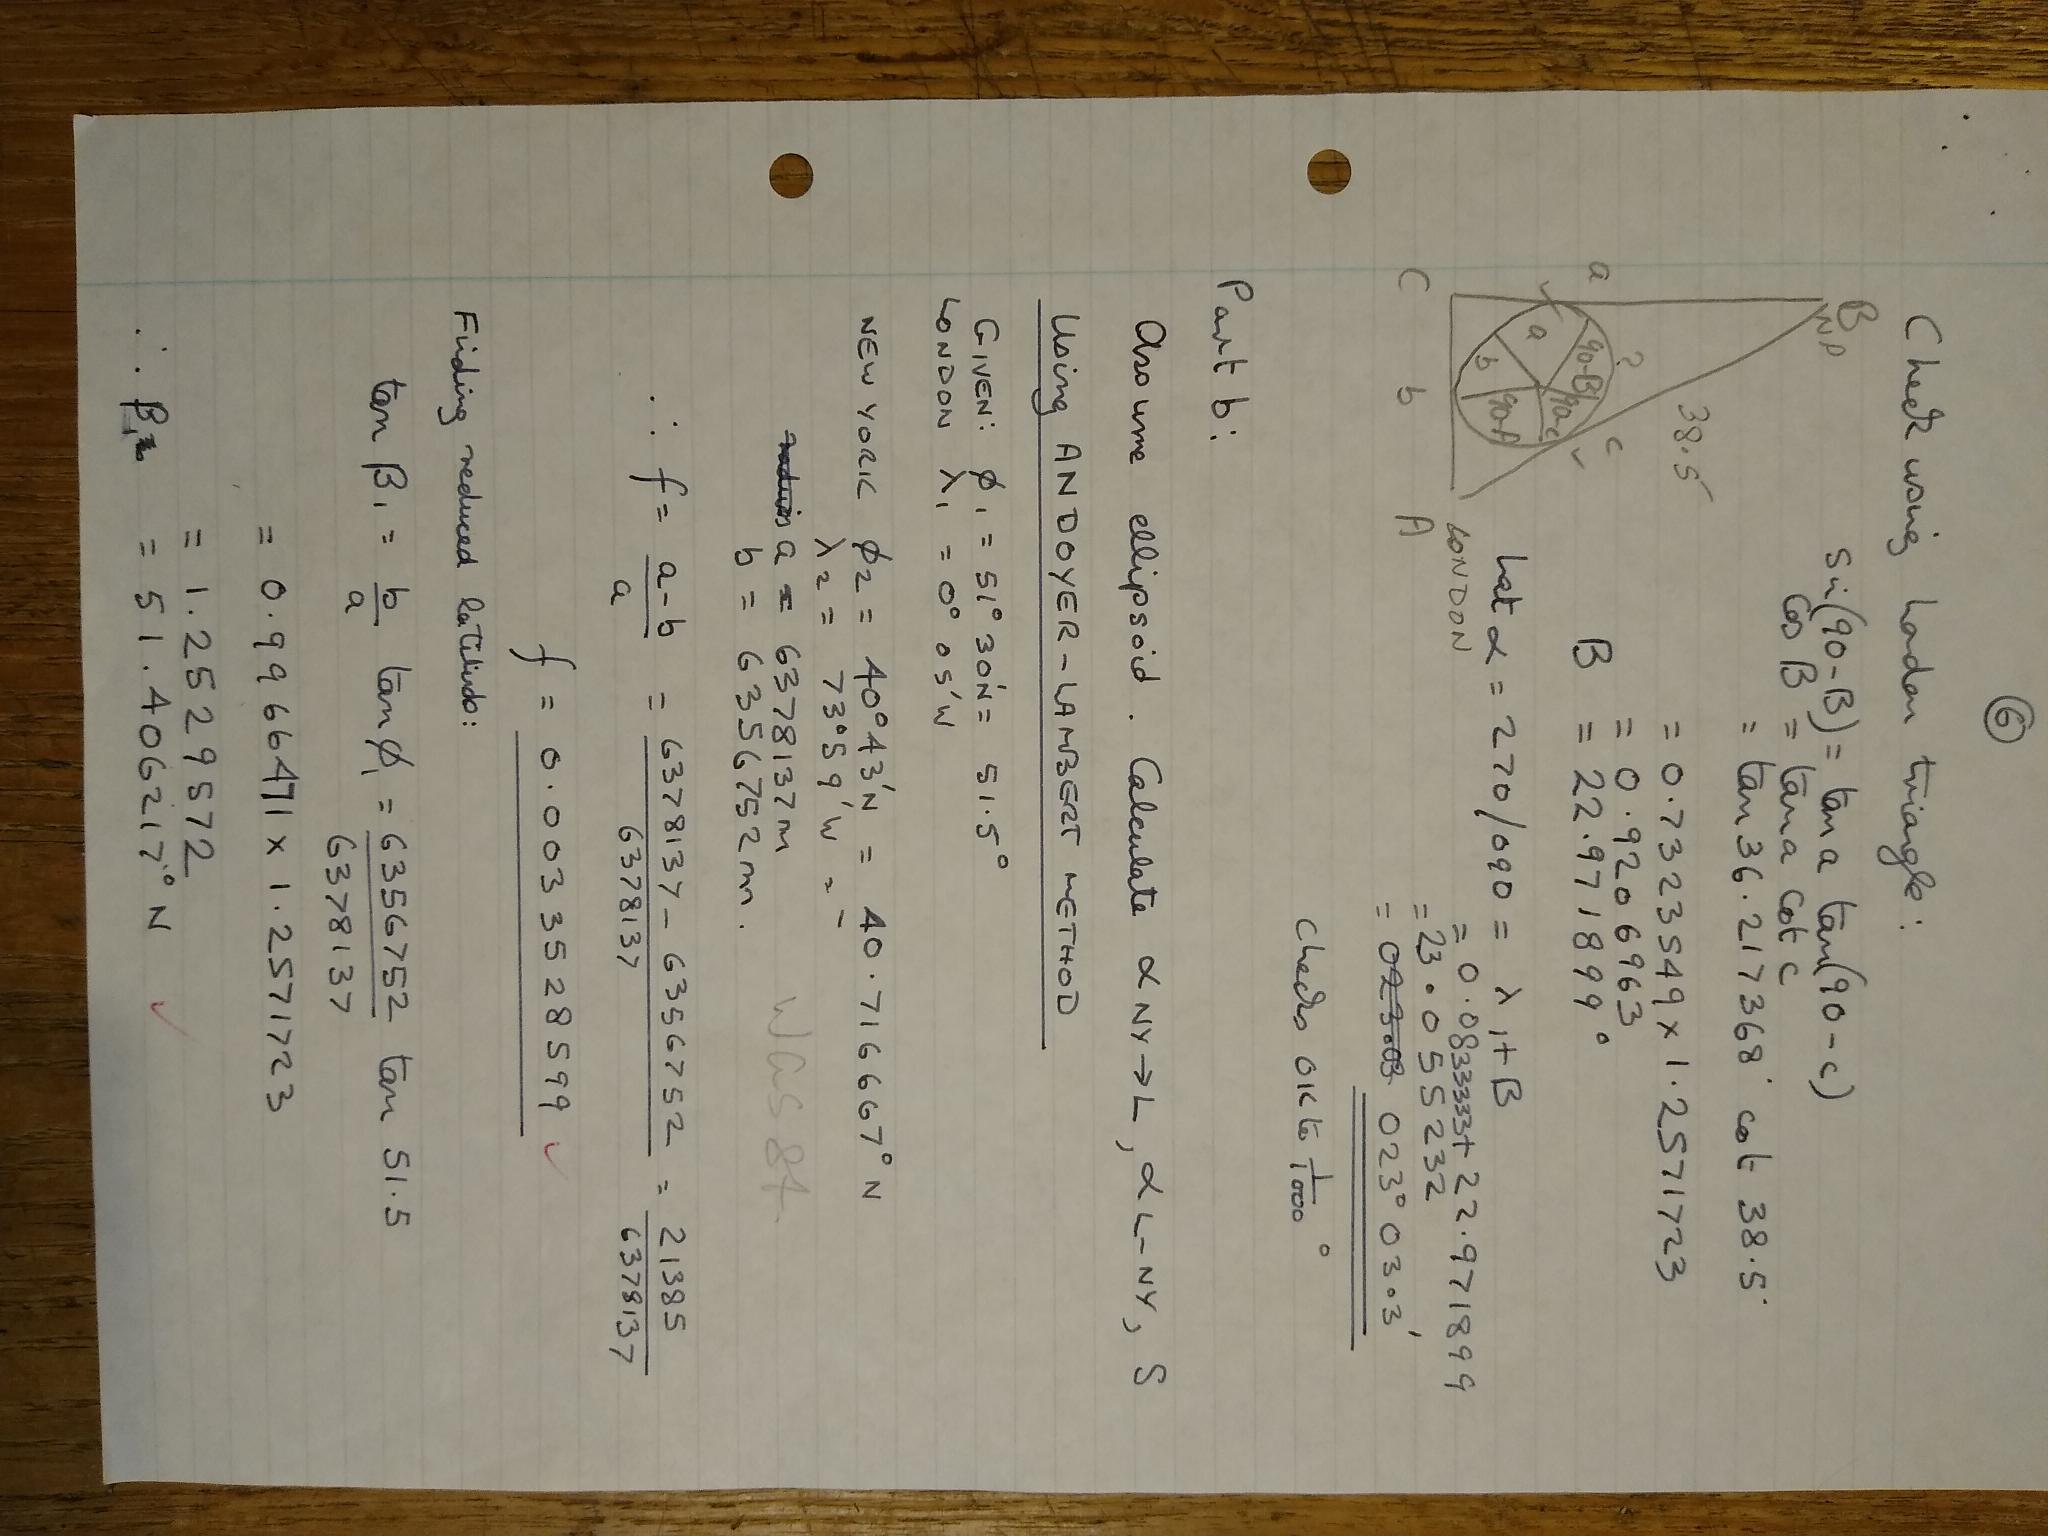 ⑥
Check using London triangle:
B
NP
38.5
a
?
c
90-B
a
90-c
b
90-A
C
b
A
LONDON
Sin(90-B) = tan a tan(90-c)
Cos B = tan a cot c
= tan 36.217368° cot 38.5°
= 0.7323549 x 1.2571723
= 0.9206963
B = 22.971899°
Lat α = 270/090 = λ1 + B
= 0.0833333 + 22.971899
= 23.0555232
= 023° 03.3'
Checks OK to 1/1000°
Part b:
Assume ellipsoid. Calculate α NY→L, α L-NY, S
Using ANDOYER-LAMBERT METHOD
GIVEN: φ1 = 51°30'N = 51.5°
LONDON λ1 = 0° 05'W
NEW YORK φ2 = 40°43'N = 40.716667°N
λ2 = 73°59'W = -
a = 6378137m
b = 6356752m.
WGS 84
∴ f = a-b/a = 6378137 - 6356752/6378137 = 21385/6378137
f = 0.0033528599 ✓
Finding reduced latitude:
tan β1 = b/a tan φ1 = 6356752/6378137 tan 51.5
= 0.99664711 x 1.2571723
= 1.2529572
∴ β1 = 51.406217°N ✓